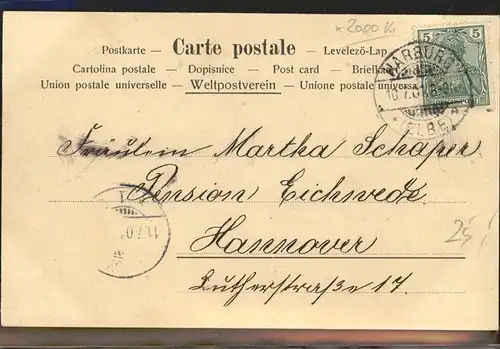 * 2000 16
Postkarte — Carte postale — Levelezö-Lap
Cartolina postale — Dopisnice — Post card — Briefka
Union postale universelle — Weltpostverein — Unione postale universa
5 5
HARBURG
(ELBE)
Fräulein Martha Schaper
Pension Eichwede.
Hannover
Lutherstraße 17.
25,